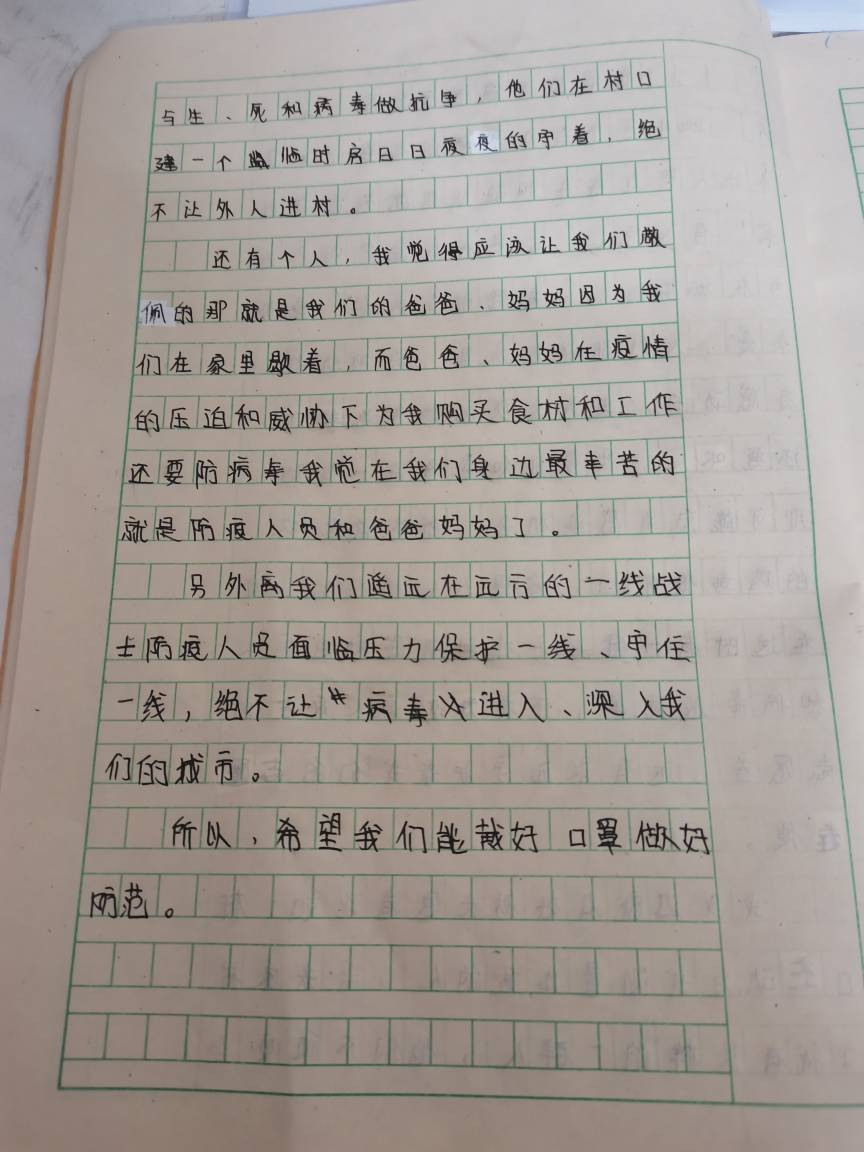 与生、死和病毒做抗争，他们在村口
建一个临时房日日夜夜的守着，绝
不让外人进村。
还有个人，我觉得应该让我们敬
佩的那就是我们的爸爸、妈妈因为我
们在家里歇着，而爸爸、妈妈在疫情
的压迫和威胁下为我购买食材和工作
还要防病毒我觉在我们身边最辛苦的
就是防疫人员和爸爸妈妈了。
另外离我们遥远在远方的一线战
士防疫人员面临压力保护一线、守住
一线，绝不让病毒进入、深入我
们的城市。
所以，希望我们能戴好口罩做好
防范。